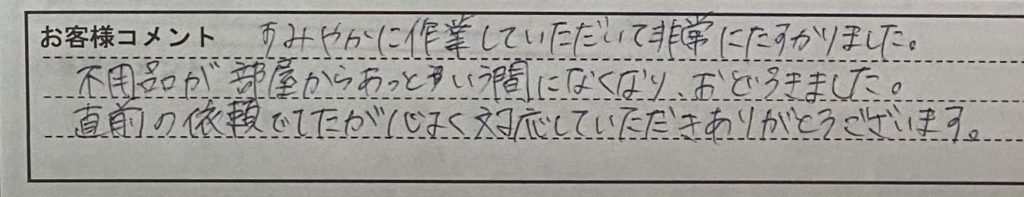 お客様コメント すみやかに作業していただいて非常にたすかりました。
不用品が部屋からあっという間になくなり、おどろきました。
直前の依頼でしたが心よく対応していただきありがとうございます。